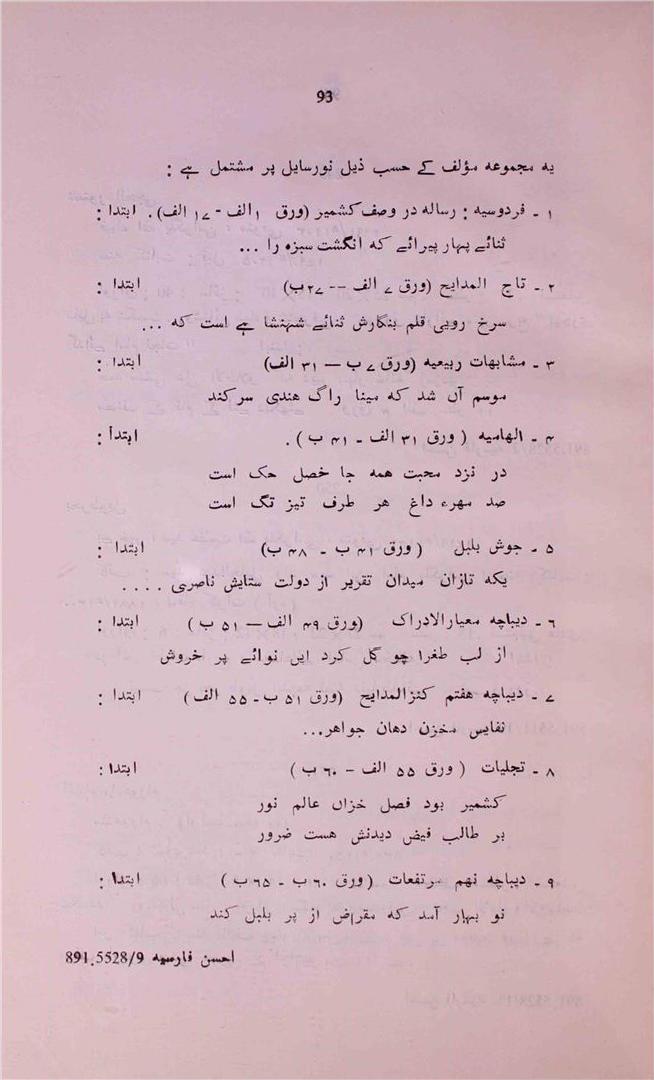 93
یہ مجموعہ مؤلف کے حسب ذیل نورسایل پر مشتمل ہے :
۱ ۔ فردوسیہ : رسالہ در وصف کشمیر (ورق ۱ الف - ۱۷ الف) . ابتدا :
ثنائے بہار پیرائے کہ انگشت سبزہ را ...
۲ ۔ تاج المدایح (ورق ۷ الف -- ۲۷ب) ابتدا :
سرخ رویی قلم بنگارش ثنائے شہنشا ہے است کہ ...
۳ ۔ مشابہات ربیعیہ (ورق ۷ ب — ۳۱ الف) ابتدا :
موسم آں شد کہ مینا راگ ھندی سر کند
۴ ۔ الھامیہ ( ورق ۳۱ الف ۔ ۴۱ ب ) . ابتدأ :
در نزد محبت ھمہ جا خصل حک است
صد مہرء داغ ھر طرف تیز تگ است
۵ ۔ جوش بلبل ( ورق ۴۱ ب ۔ ۴۸ ب) ابتدا :
یکہ تازان میدان تقریر از دولت ستایش ناصری ....
۶ ۔ دیباچہ معیارالادراک (ورق ۴۹ الف — ۵۱ ب ) ابتدا :
از لب طغرا چو گل کرد ایں نوائے پر خروش
۷ ۔ دیباچہ ھفتم کنزالمدایح (ورق ۵۱ ب ۔ ۵۵ الف ) ابتدا :
نفایس مخزن دھان جواھر...
۸ ۔ تجلیات ( ورق ۵۵ الف - ۶۰ ب ) ابتدا :
کشمیر بود فصل خزاں عالم نور
بر طالب فیض دیدنش ھست ضرور
۹ ۔ دیباچہ نہم مرتفعات (ورق ۶۰ ب ۔ ۶۵ ب ) ابتدا :
نو بہار آمد کہ مقراض از پر بلبل کند
احسن فارسیہ 891.5528/9